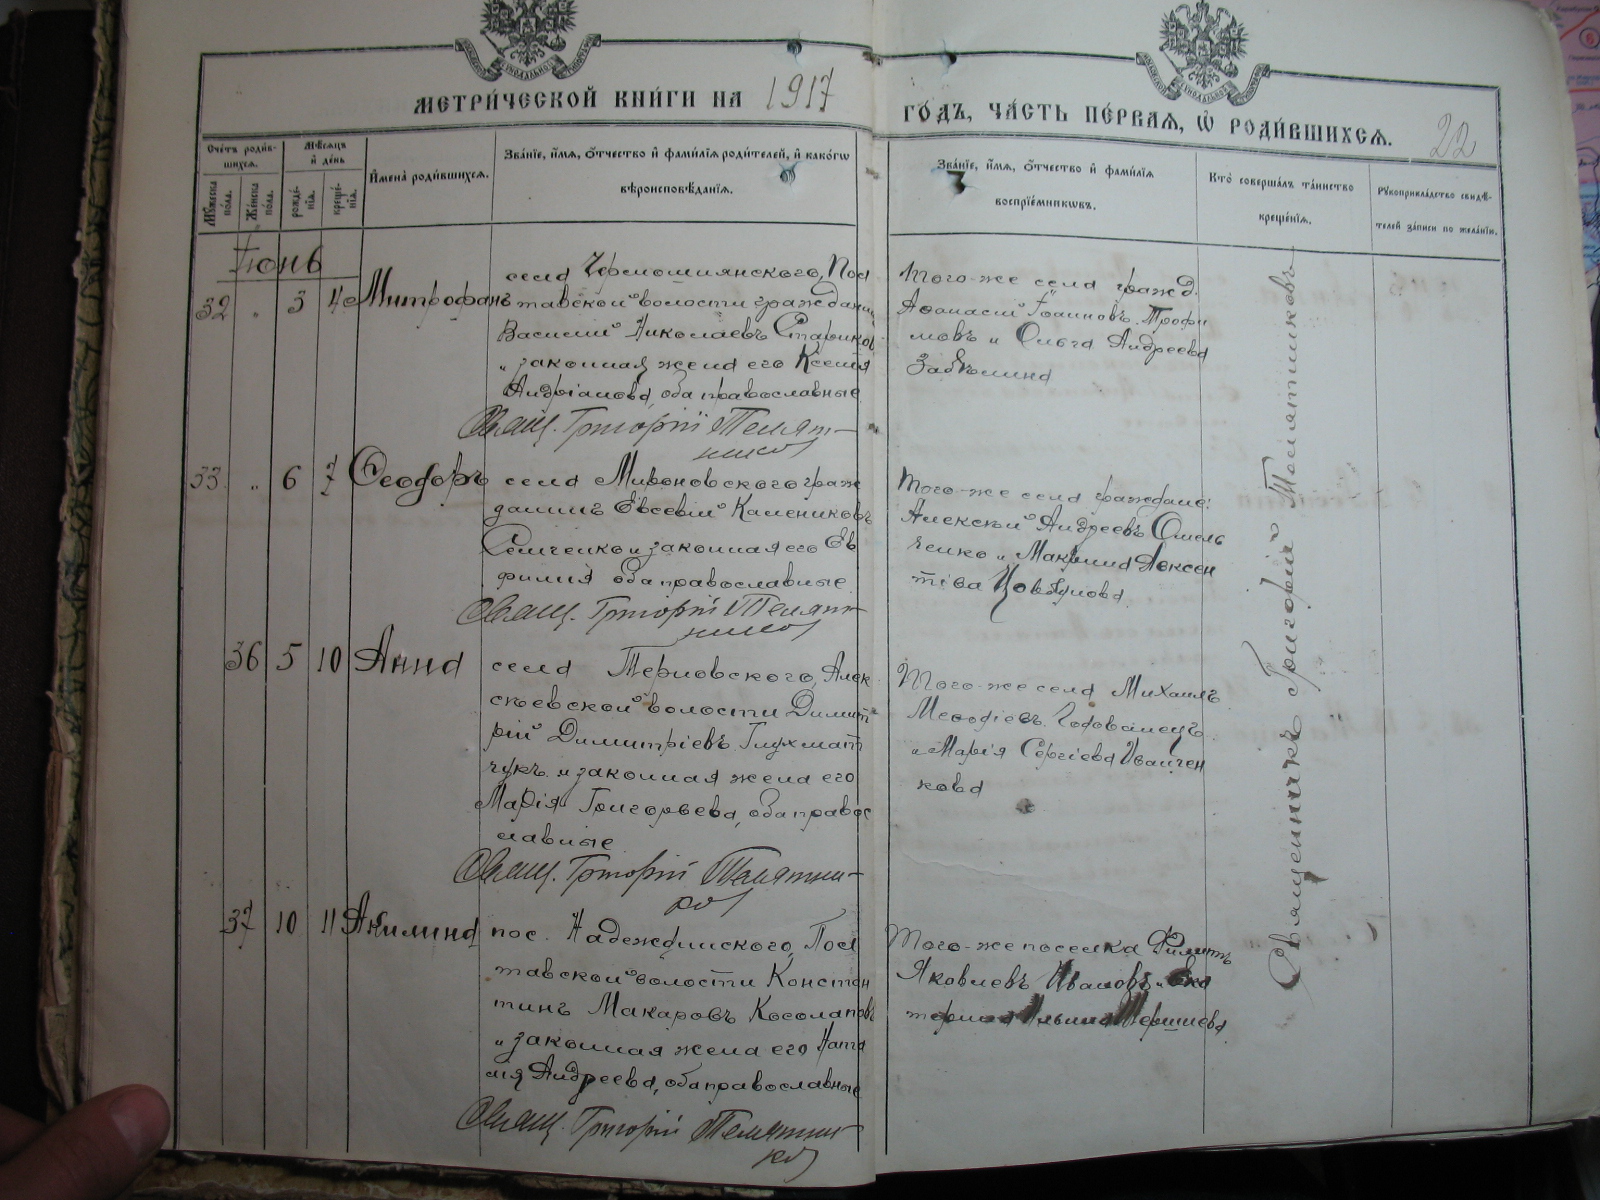 МЕТРИ́ЧЕСКОЙ КНИ́ГИ НА 1917 ГО́ДЪ, ЧА́СТЬ ПЕ́РВАѦ, Ѡ҆ РОДИ́ВШИХСѦ. 22
Сче́тъ роди́в-
шихсѧ.
Мꙋ́жеска по́ла.
Же́нска по́ла.
Мѣ́сѧцъ
и҆ де́нь
рожде́-
нїѧ.
креще́-
нїѧ.
И҆мена̀ роди́вшихсѧ.
Зва́нїе, и҆́мѧ, ѻ҆́тчество и҆ фами́лїѧ роди́телей, и҆ како́гѡ
вѣроисповѣ́данїѧ.
Зва́нїе, и҆́мѧ, ѻ҆́тчество и҆ фами́лїѧ
воспрїе́мникѡвъ.
Кто̀ соверша́лъ та́инство
креще́нїѧ.
Рꙋкоприкла́дство свидѣ́-
телей за́писи по жела́нїю.
Іюнь
32 " 3 4 Митрофанъ
села Чермошнянского, Пол
тавской волости гражданин
Василий Николаевъ Стариков
и законная жена его Ксенiя
Андрiанова, оба православные
Свящ. Григорiй Темят-
никовъ
Того-же села гражд.
Аѳанасiй Iоанновъ Трофи
мовъ и Ольга Андреева
Забѣлина
33 " 6 7 Ѳеодоръ
села Мироновского граж
данинъ Евсевiй Калениковъ
Семченко и законная его Ев
фимия оба православные
Свящ. Григорiй Темят-
никовъ
Того-же села граждане:
Алексѣй Андреевъ Омель
ченко и Макрина Авксен
тiева
36 5 10 Анна
села Терновского, Алек
сѣевской волости Димит
рiй Димитрiевъ Глухмат
чукъ и законная жена его
Марiя Григорьева, оба правос
лавные
Свящ. Григорiй Темятни-
ковъ
Того-же села Михаилъ
Меѳодiевъ Годованецъ
и Марiя Сергiева Иванчен
кова
37 10 11 Акилина
пос. Надеждинского, Пол
тавской волости Констан
тинъ Макаровъ Косолаповъ
и законная жена его Ната
лiя Андреева, оба православные
Свящ. Григорiй Темятни-
ковъ
Того-же поселка Филиппъ
Яковлевъ Ивановъ и Ека
терина Ильина
Священникъ Григорiй Темятниковъ